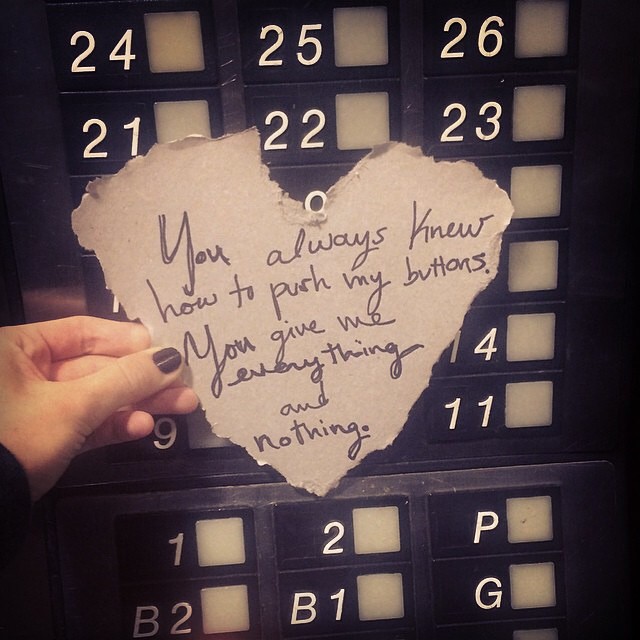 24 25 26
21 22 23
9
You always knew
how to push my buttons.
You give me
everything
and
nothing.
14
11
9
1 2 P
B2 B1 G